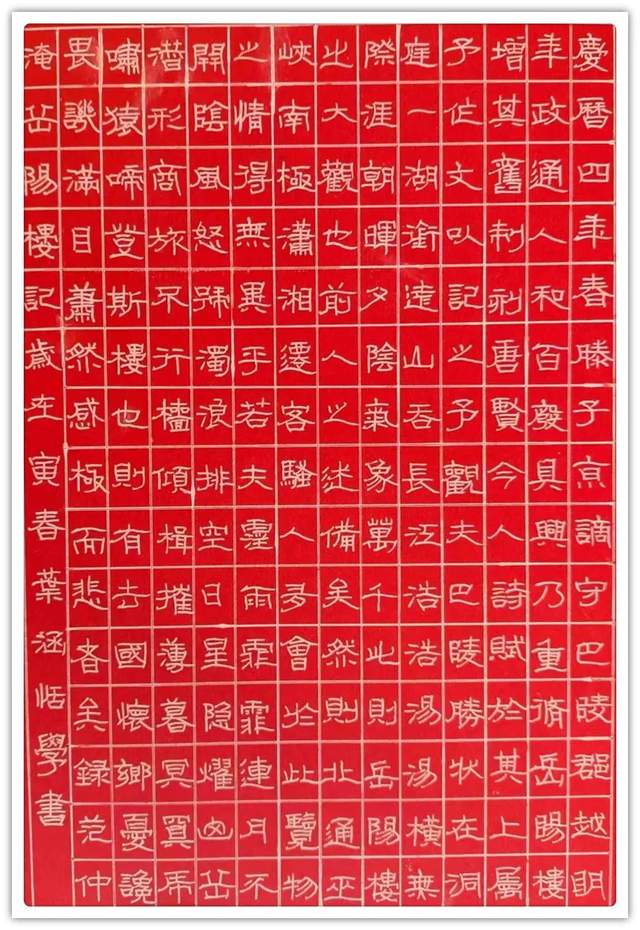 慶曆四年春滕子京謫守巴陵郡越明
年政通人和百廢具興乃重脩岳陽樓
增其舊制刻唐賢今人詩賦於其上屬
予作文以記之予觀夫巴陵勝狀在洞
庭一湖銜遠山吞長江浩浩湯湯橫無
際涯朝暉夕陰氣象萬千此則岳陽樓
之大觀也前人之述備矣然則北通巫
峽南極瀟湘遷客騷人多會於此覽物
之情得無異乎若夫霪雨霏霏連月不
開陰風怒號濁浪排空日星隐耀山岳
潛形商旅不行檣傾楫摧薄暮冥冥虎
嘯猿啼登斯樓也則有去國懷鄉憂讒
畏譏滿目蕭然感極而悲者矣錄范仲
淹岳陽樓記歲在寅春葉涵恬學書